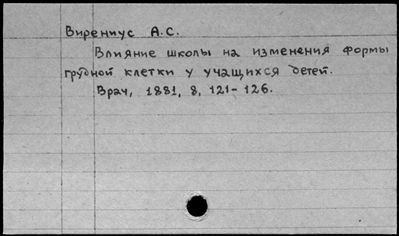 Вирениус А.С.
Влияние школы на изменения формы
грудной клетки у учащихся детей.
Врач, 1881, 8, 121-126.